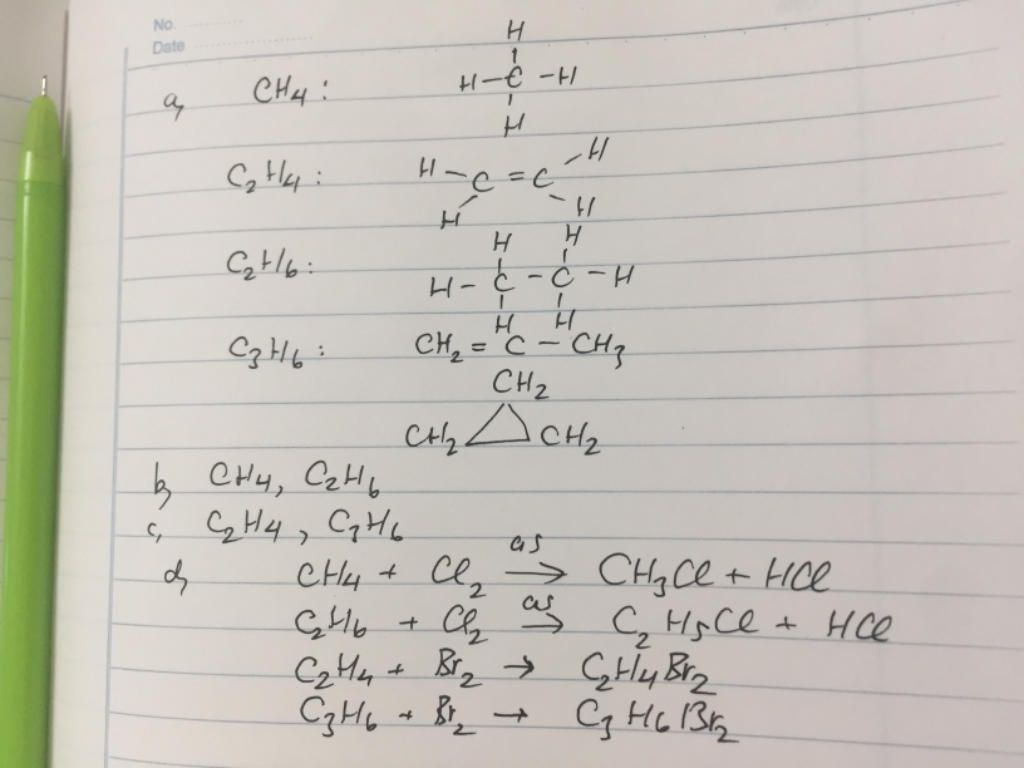 No.
Date
H
a, CH4 : H-C-H
H
C2H4 : H-C=C-H
H H
H H
C2H6 : H-C-C-H
H H
C3H6 : CH2=C-CH3
CH2
CH2 CH2
b, CH4, C2H6
c, C2H4, C3H6
d, CH4 + Cl2 as→ CH3Cl + HCl
C2H6 + Cl2 as→ C2H5Cl + HCl
C2H4 + Br2 → C2H4Br2
C3H6 + Br2 → C3H6Br2